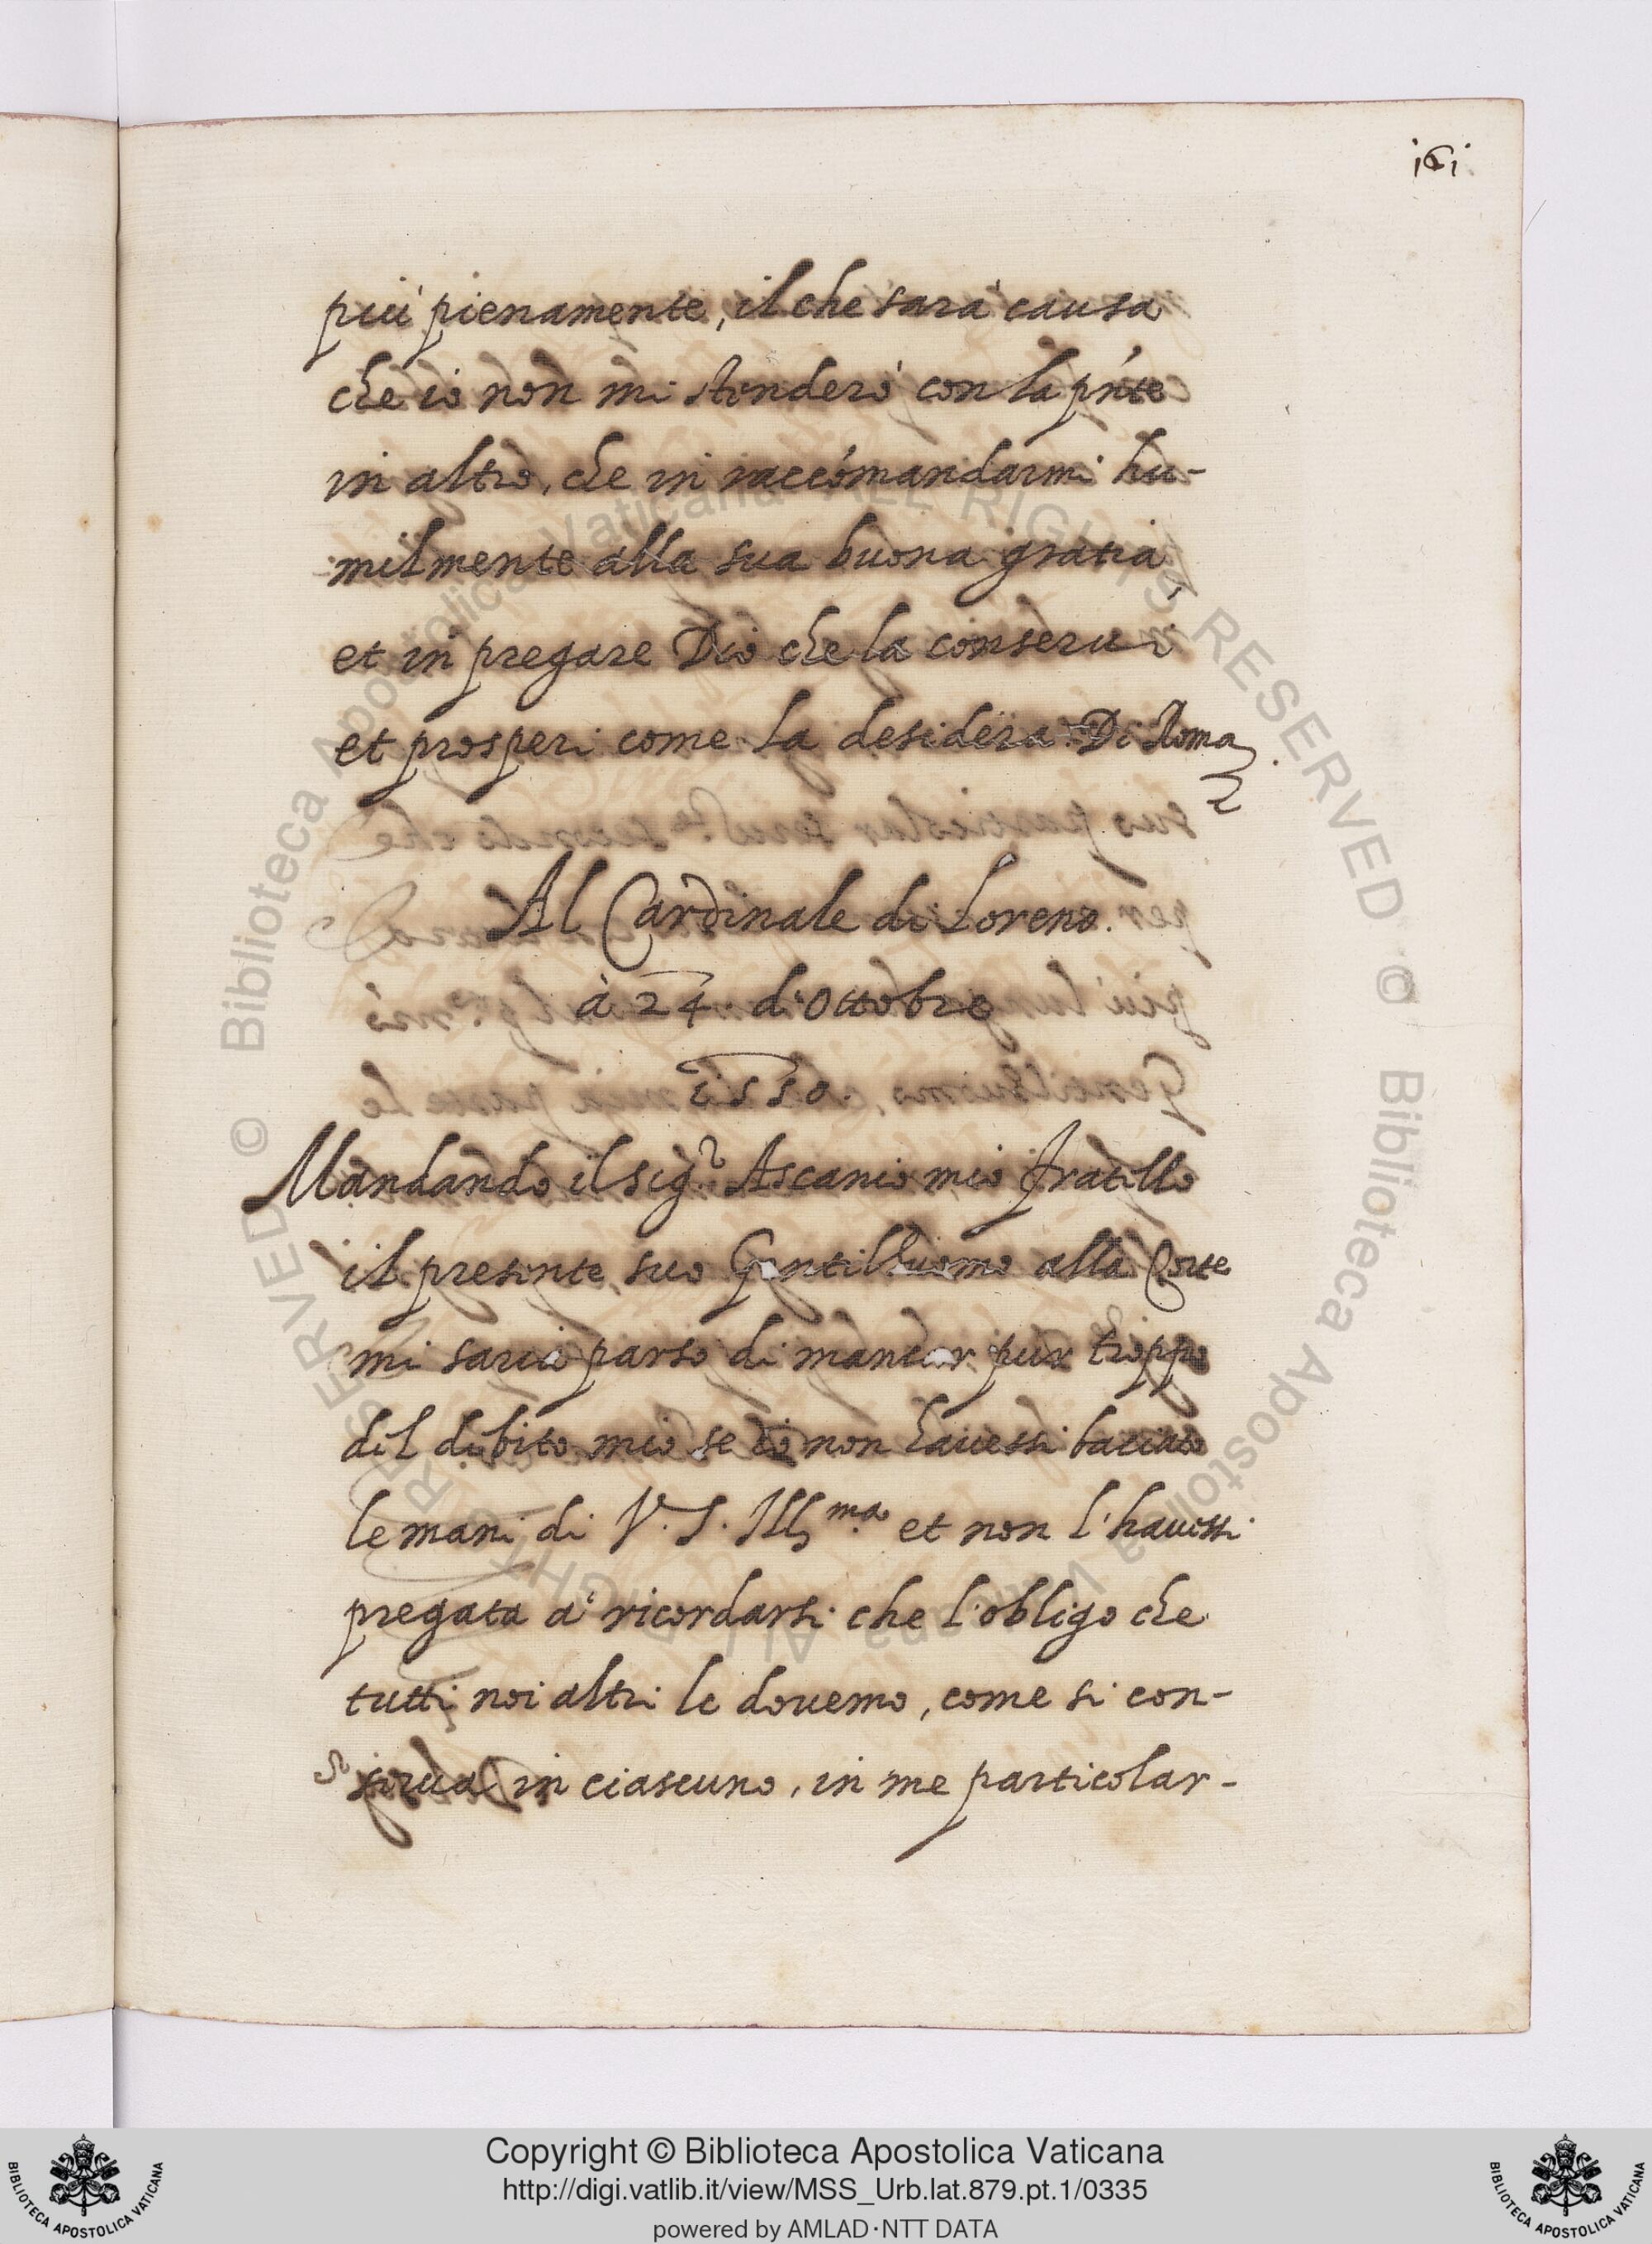 161
più pienamente, il che sarà causa
che io non mi stenderò con la pñte
in altro, che in raccomandarmi hu-
milmente alla sua buona gratia,
et in pregare Dio che la conserui
et prosperi come la desidera. Di Roma
Al Cardinale di Loreno.
à 24. di Ottobre
1550.
Mandando il sig.r Ascanio mio fratello
il presente suo Gentilhuomo alla Corte
mi saria parso di mancar pur troppo
del debito mio se io non hauessi baciato
le mani di V. S. Ill.ma et non l'hauessi
pregata à ricordarsi che l'obligo che
tutti noi altri le douemo, come si con-
serua in ciascuno, in me particolar-
© Biblioteca Apostolica Vaticana ALL RIGHTS RESERVED © Biblioteca Apostolica Vaticana ALL RIGHTS RESERVED
Copyright © Biblioteca Apostolica Vaticana
http://digi.vatlib.it/view/MSS_Urb.lat.879.pt.1/0335
powered by AMLAD·NTT DATA
BIBLIOTECA APOSTOLICA VATICANA
BIBLIOTECA APOSTOLICA VATICANA